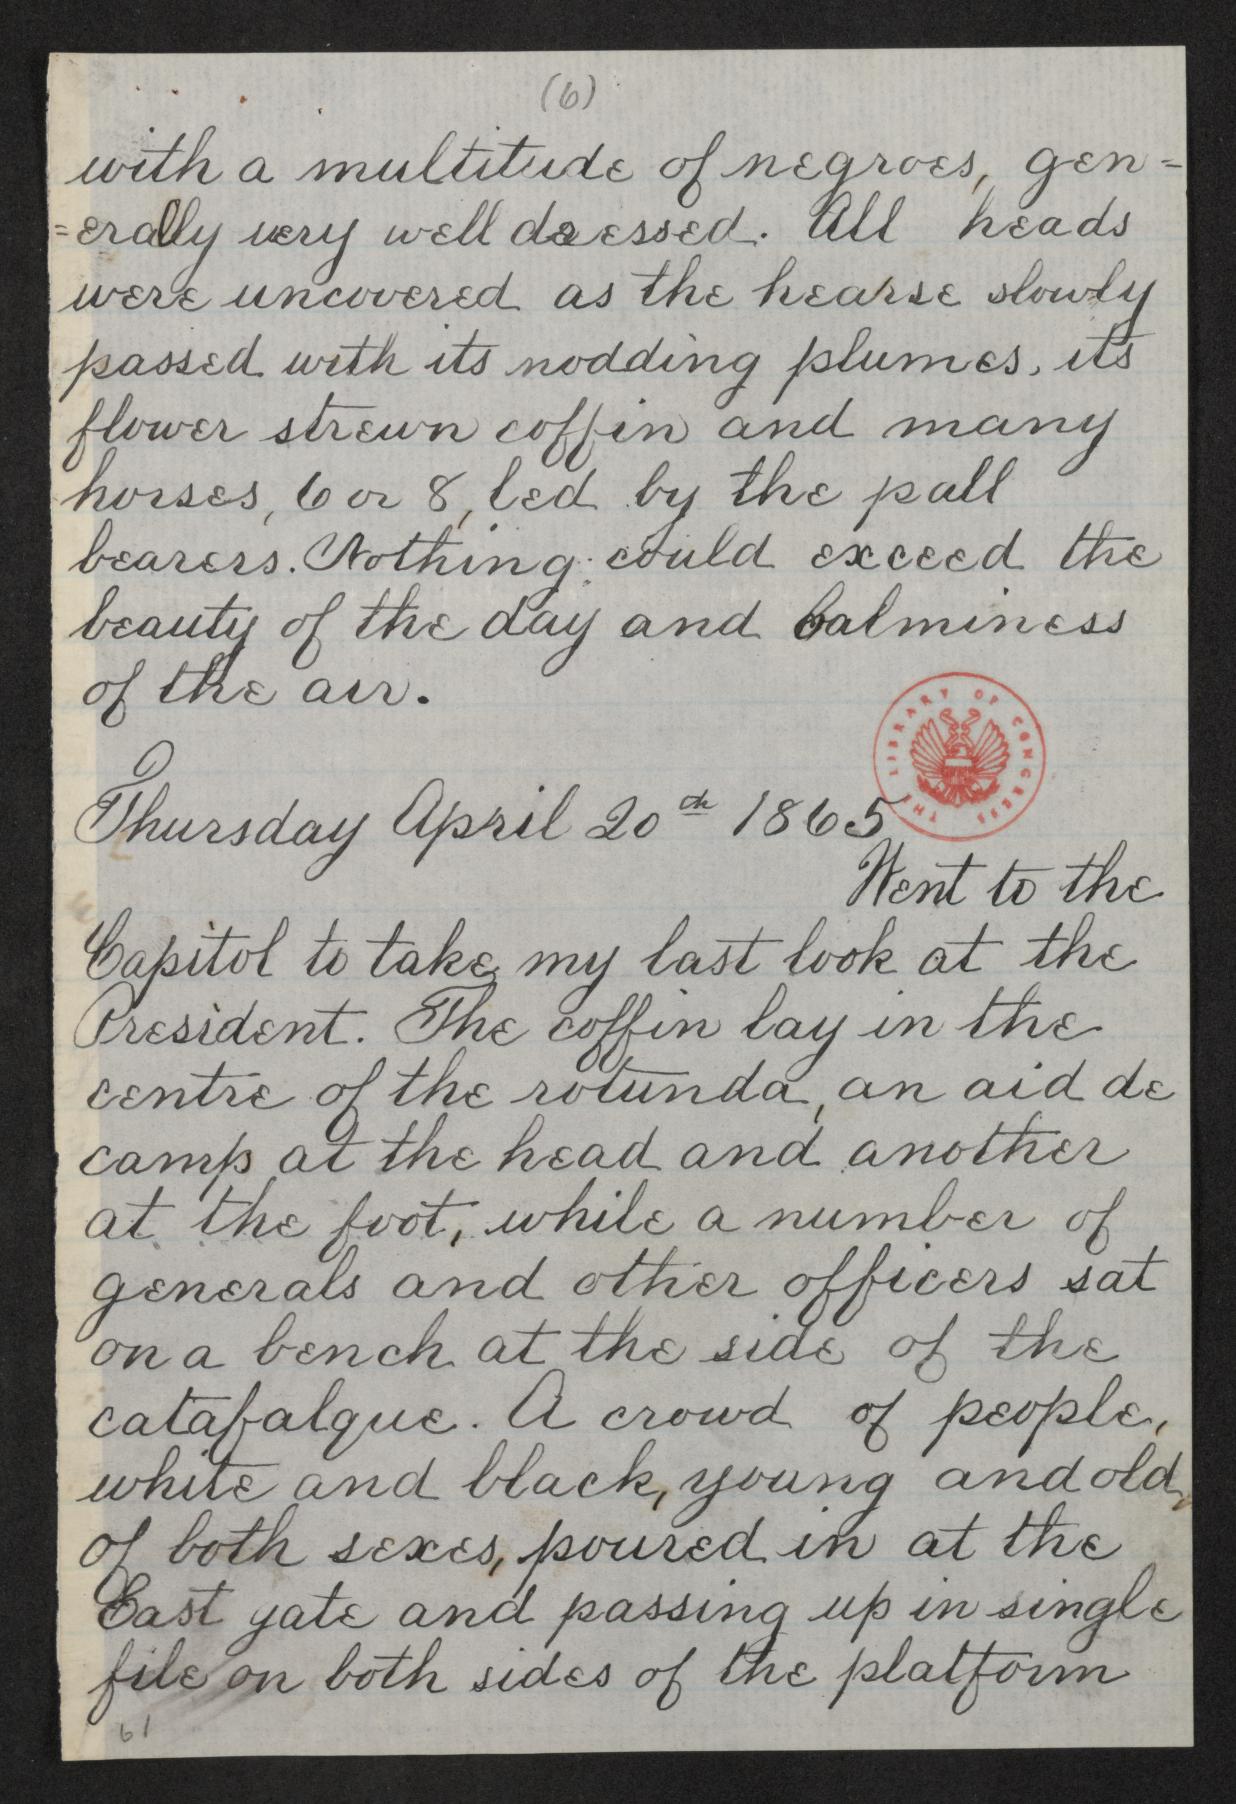 (6)
with a multitude of negroes, gen=
=erally very well dressed. All heads
were uncovered as the hearse slowly
passed with its nodding plumes, its
flower strewn coffin and many
horses, 6 or 8, led by the pall
bearers. Nothing could exceed the
beauty of the day and balminess
of the air.
THE LIBRARY OF CONGRESS
Thursday April 20th 1865
Went to the
Capitol to take my last look at the
President. The coffin lay in the
centre of the rotunda, an aid de
camp at the head and another
at the foot, while a number of
generals and other officers sat
on a bench at the side of the
catafalque. A crowd of people,
white and black, young and old,
of both sexes, poured in at the
East gate and passing up in single
file on both sides of the platform
61